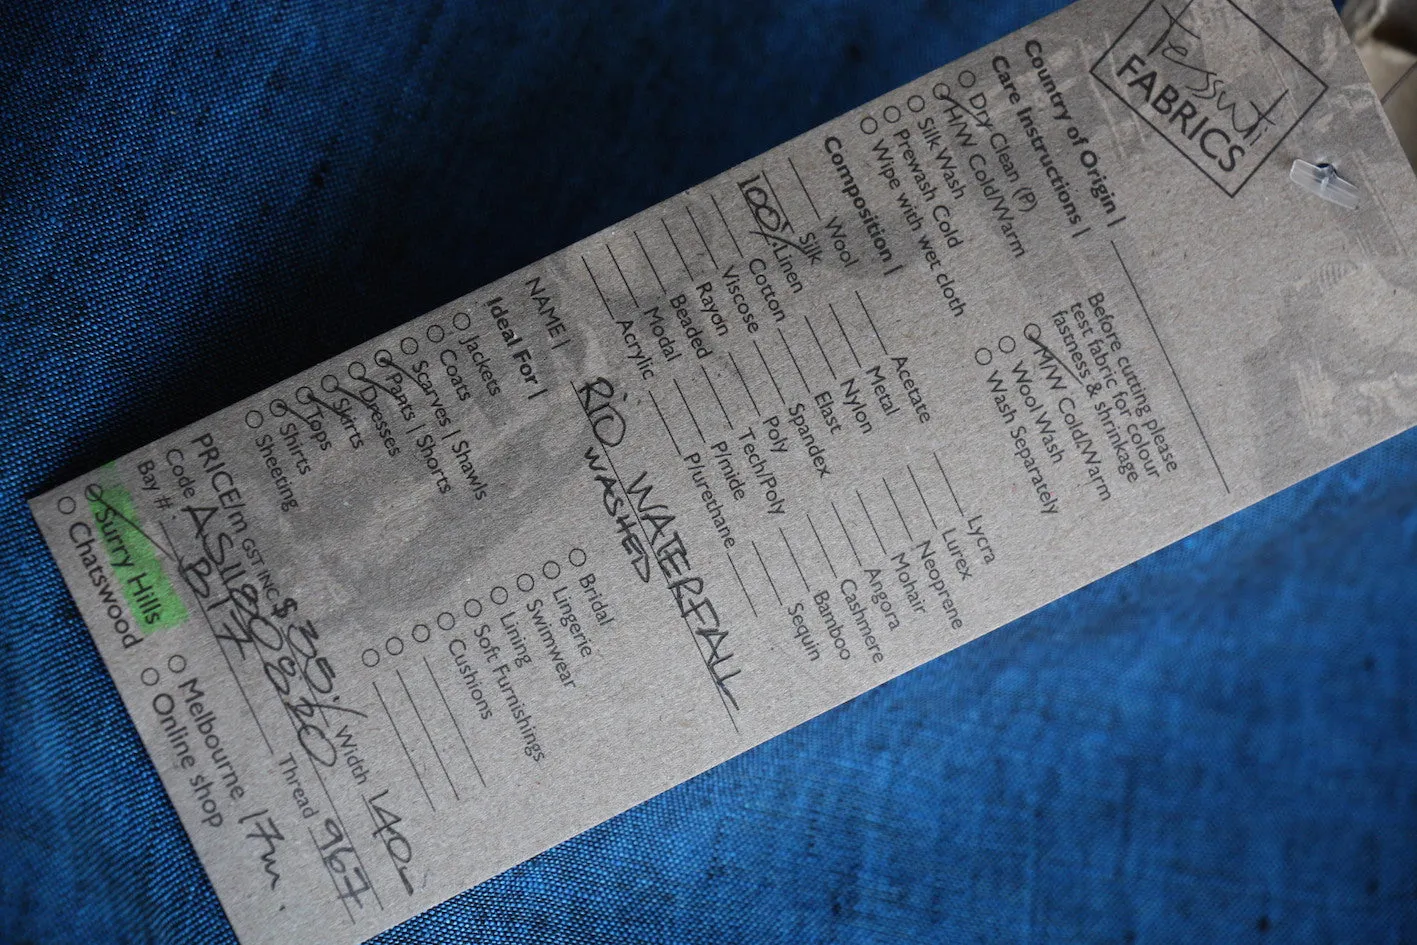 Tessuti
FABRICS
Country of Origin |
Care Instructions |
Dry Clean (P)
H/W Cold/Warm
Silk Wash
Prewash Cold
Wipe with wet cloth
Before cutting please
test fabric for colour
fastness & shrinkage
M/W Cold/Warm
Wool Wash
Wash Separately
Composition |
Wool
Silk
100% Linen
Cotton
Viscose
Rayon
Beaded
Modal
Acrylic
Acetate
Metal
Nylon
Elast
Spandex
Poly
Tech/Poly
P/mide
P/urethane
Lycra
Lurex
Neoprene
Mohair
Angora
Cashmere
Bamboo
Sequin
NAME | RIO WATERFALL
WASHED
Ideal For |
Jackets
Coats
Scarves | Shawls
Pants | Shorts
Dresses
Skirts
Tops
Shirts
Sheeting
Bridal
Lingerie
Swimwear
Lining
Soft Furnishings
Cushions
PRICE/m GST INC $ 35/ Width 140
Code AS1190820 Thread 967
Bay #. B17
Surry Hills
Chatswood
Melbourne 17m.
Online shop